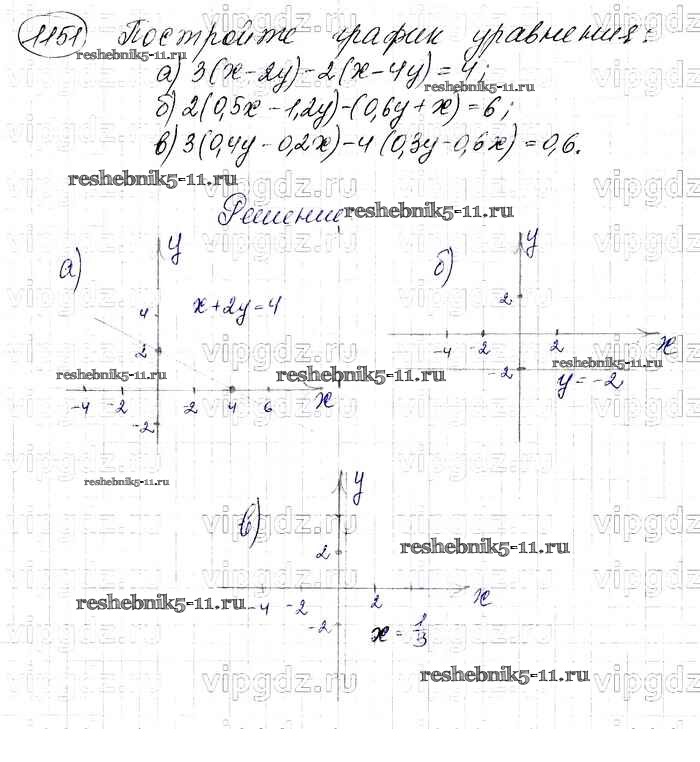 1151 Постройте график уравнения:
reshebnik5-11.ru
а) 3(x-2y)-2(x-4y)=4;
б) 2(0,5x-1,2y)-(0,6y+x)=6;
в) 3(0,4y-0,2x)-4(0,3y-0,6x)=0,6.
reshebnik5-11.ru
vipgdz.ru vipgdz.ru vipgdz.ru
Решение
reshebnik5-11.ru
а) y
б) y
x+2y=4
4
2
2
reshebnik5-11.ru
reshebnik5-11.ru
reshebnik5-11.ru
-4 -2 2 4 6 x
-2
-4 -2 2 x
-2
y=-2
reshebnik5-11.ru
в) y
2
reshebnik5-11.ru
reshebnik5-11.ru
-4 -2 2 x
-2
x = 1/3
reshebnik5-11.ru
vipgdz.ru vipgdz.ru vipgdz.ru